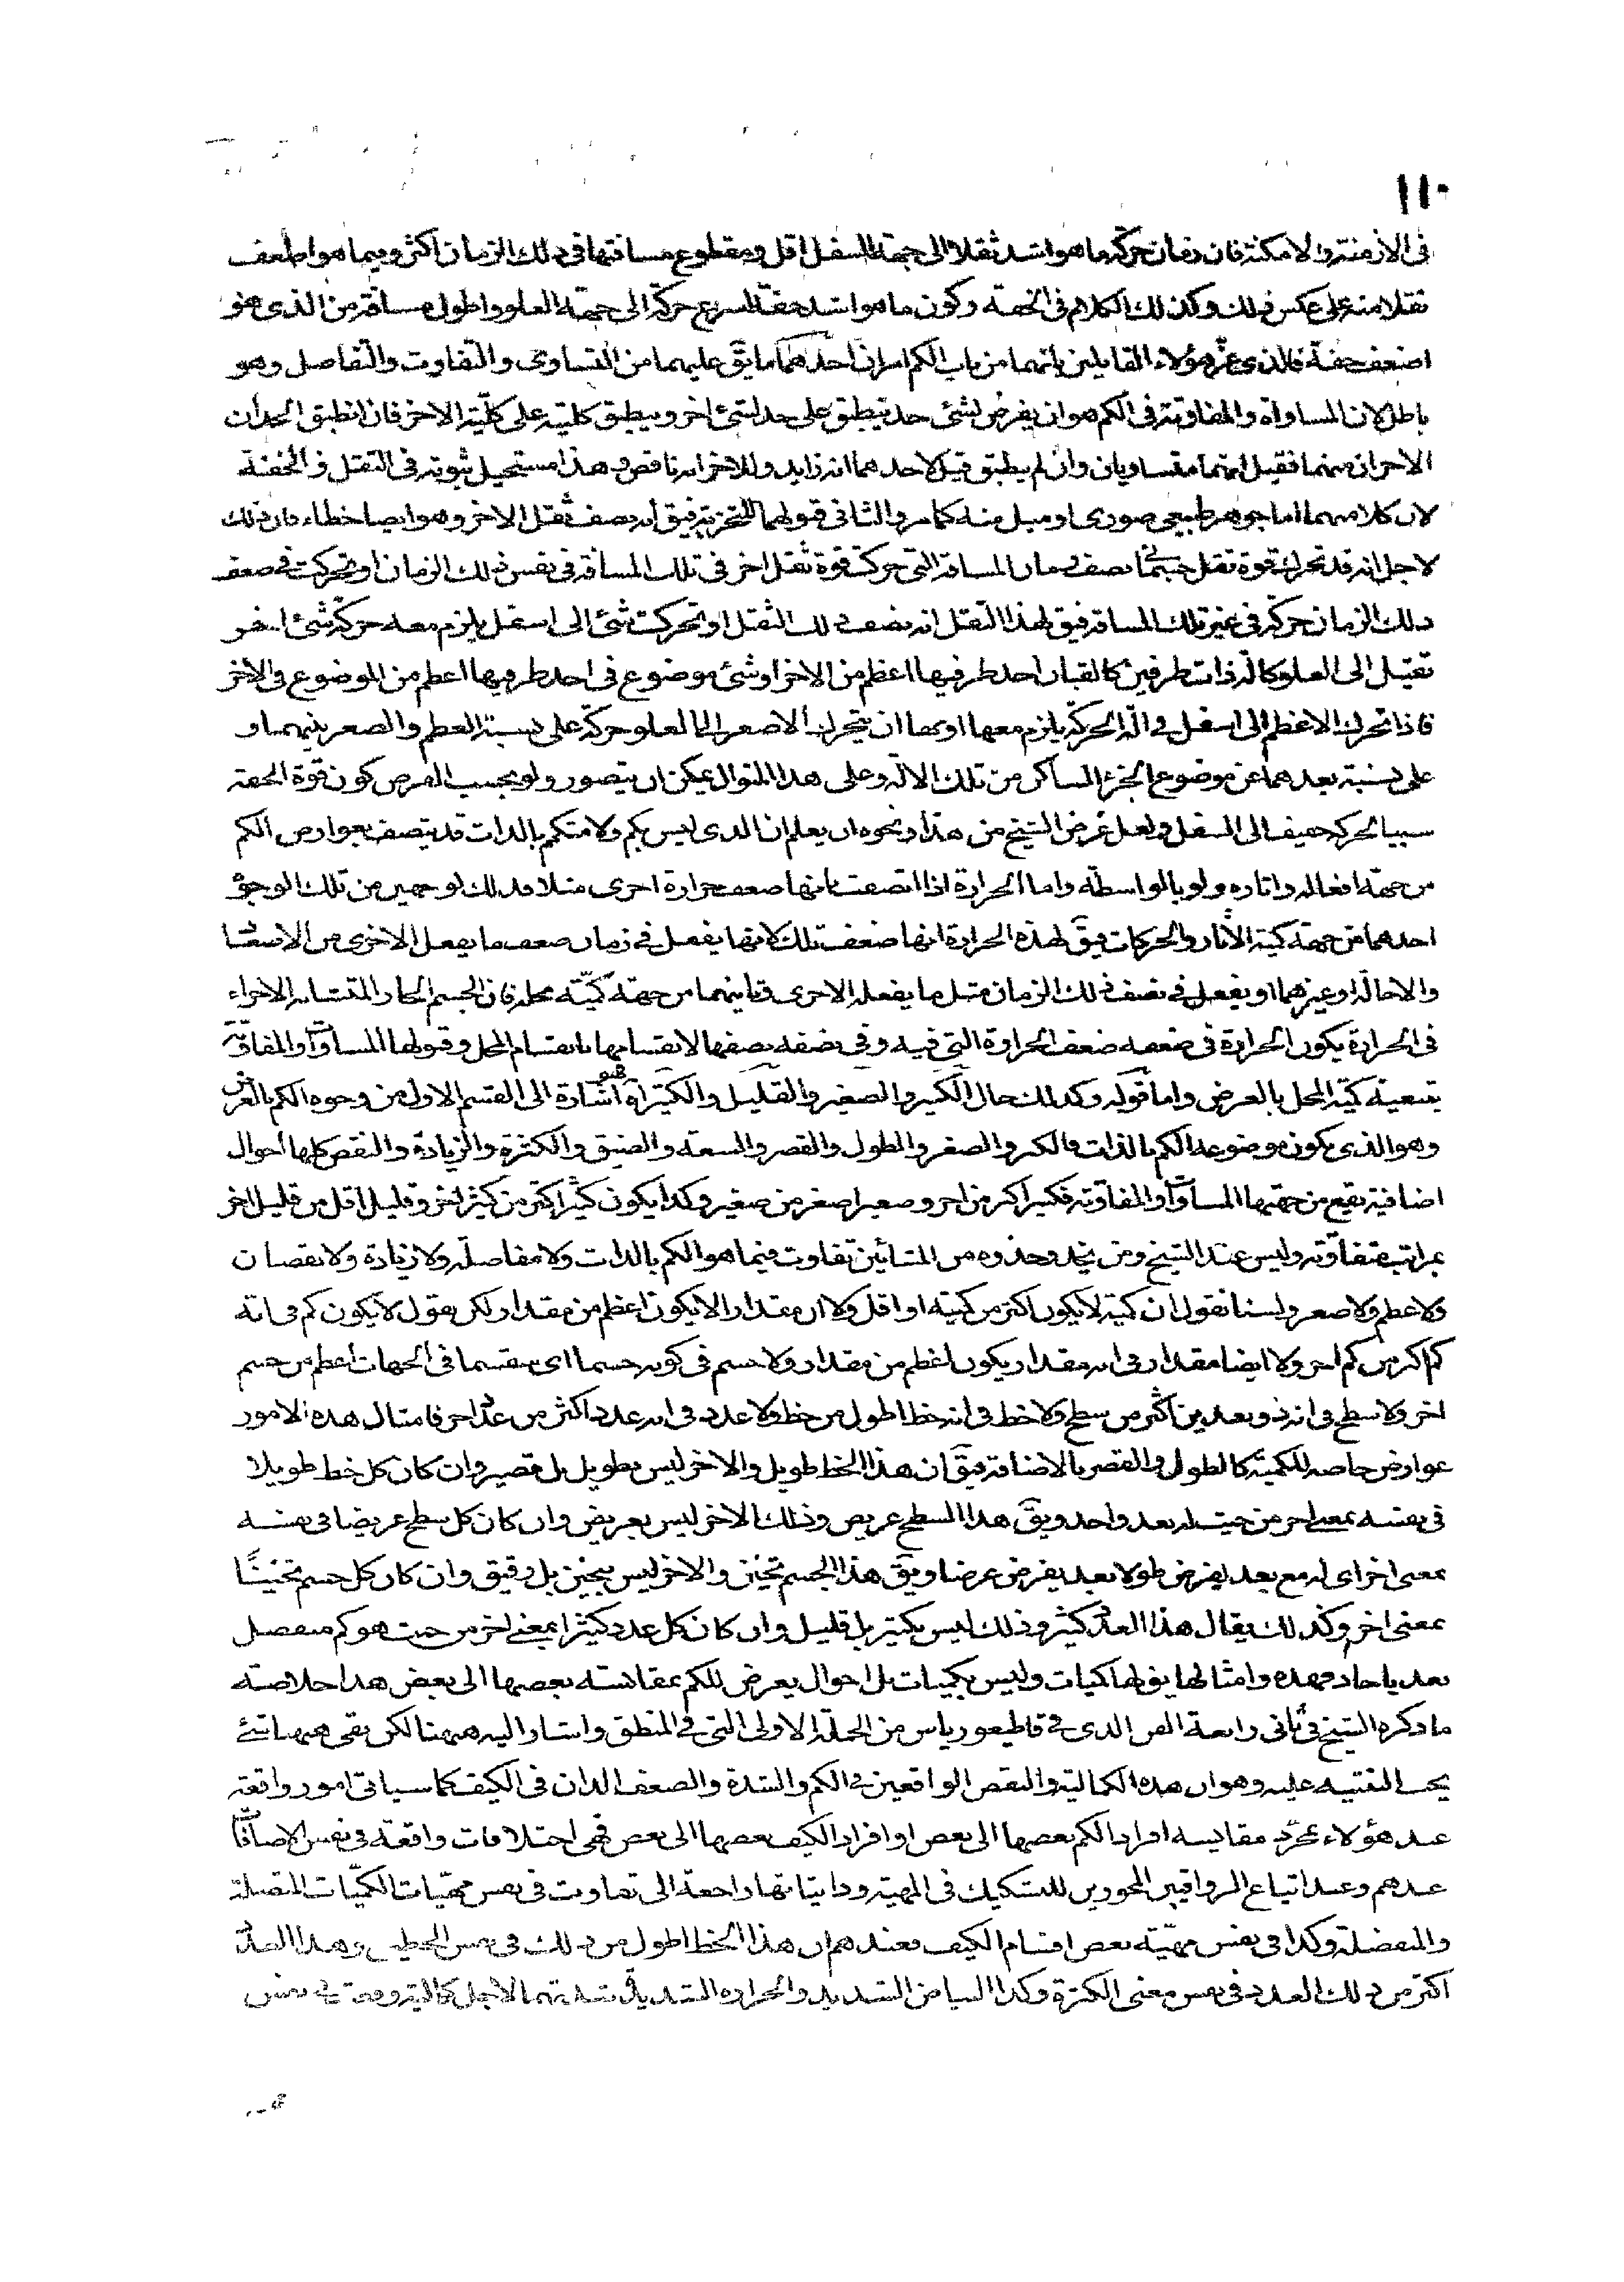 ١١٠
فى الازمنة والامكنة فان زمان حركة ما هو اشد ثقلا الى جهة السفل اقل ومقطوع مسافتها فى ذلك الزمان اكثر وفيما هو اضعف
ثقلا منه على عكس ذلك وكذلك الكلام فى الخفة وكون ما هو اشد خفة اسرع حركة الى جهة العلو واطول مسافة من الذى هو
اضعف خفة فالذى غر هؤلاء القايلين بانهما من باب الكم امران احدهما ما يق عليهما من التساوى والتفاوت والتفاضل وهو
باطل لان المساواة والمفاوتة فى الكم هو ان يفرض لشئ حد ينطبق على حد لشئ اخر وينطبق كليته على كلية الاخر فان انطبق الحدان
الاخران منهما فقيل انهما متساويان وان لم ينطبق قيل لاحدهما انه زايد وللاخر انه ناقص وهذا مستحيل ثبوته فى الثقل والخفة
لان كلا منهما اما جوهر طبيعى صورى او ميل منه كما مر والثانى قبولهما للتجزية فيق انه نصف ثقل الاخر وهو ايضا خطاء فان ذلك
لاجل انه قد تحرك قوة ثقل جسما نصف المسافة التى حركت قوة ثقل اخر فى تلك المسافة فى نفس ذلك الزمان او تحركت فى ضعف
ذلك الزمان حركة فى غير تلك المسافة فيق لهذا الثقل انه نصف ذلك الثقل او تحركت شئ الى اسفل يلزم معه حركة شئ اخر
ثقيل الى العلو كالة ذات طرفين كالقبان احد طرفيها اعظم من الاخر او شئ موضوع فى احد طرفيها اعظم من الموضوع فى الاخر
فاذا تحرك الاعظم الى اسفل فى الة الحركة يلزم معها او بها ان يتحرك الاصغر الى العلو حركة على نسبة العظم والصغر بينهما او
على نسبة بعدهما عن موضوع الجزء الساكن من تلك الالة وعلى هذا المنوال يمكن ان يتصور ولو بحسب الفرض كون قوة الخفة
سببا لحركة خفيف الى السفل ولعل غرض الشيخ من هذا ونحوه ان يعلم ان الذى ليس بكم ولا متكم بالذات قد يتصف بعوارض الكم
من جهة افعاله واثاره ولو بالواسطة واما الحرارة اذا اتصفت بانها ضعف حرارة اخرى مثلا فذلك لوجهين من تلك الوجوه
احدهما من جهة كمية الاثار والحركات فيق لهذه الحرارة انها ضعف تلك لانها يفعل فى زمان ضعف ما يفعل الاخرى من الاسخان
والاحالة او غيرهما او يفعل فى نصف ذلك الزمان مثل ما يفعله الاخرى وثانيهما من جهة كمية محله فان الجسم الحار المتشابه الاجزاء
فى الحرارة يكون الحرارة فى ضعفه ضعف الحرارة التى فيه وفى نصفه نصفها لانقسامها بانقسام المحل وقبولها المساواة والمفاوتة
بتبعية كمية المحل بالعرض واما قوله وكذلك حال الكبير والصغير والقليل والكثير اه فهو اشارة الى القسم الاول من وجوه الكم بالعرض
وهو الذى يكون موضوعه الكم بالذات فالكبر والصغر والطول والقصر والسعة والضيق والكثرة والزيادة والنقص كلها احوال
اضافية يقع من جهتها المساواة والمفاوتة فكبير اكبر من اخر وصغير اصغر من صغير وكذا يكون كثير اكثر من كثير اخر وقليل اقل من قليل اخر
بمراتب متفاوتة وليس عند الشيخ ومن يحذو حذوه من المشائين تفاوت فيما هو الكم بالذات ولا مفاضلة ولا زيادة ولا نقصان
ولا عظم ولا صغر ولسنا نقول ان كمية لا يكون اكثر من كمية او اقل ولا ان مقدارا لا يكون اعظم من مقدار ولكن نقول لا يكون كم فى انه
كم اكثر من كم اخر ولا ايضا مقدار فى انه مقدار يكون اعظم من مقدار ولا جسم فى كونه جسما اى منقسما فى الجهات اعظم من جسم
اخر ولا سطح فى انه ذو بعدين اكثر من سطح ولا خط فى انه خط اطول من خط ولا عدد فى انه عدد اكثر من عدد اخر فامثال هذه الامور
عوارض خاصة للكمية كالطول والقصر بالاضافة فيق ان هذا الخط طويل والاخر ليس بطويل بل قصير وان كان كل خط طويلا
فى نفسه بمعنى اخر من حيث له بعد واحد ويق هذا السطح عريض وذلك الاخر ليس بعريض وان كان كل سطح عريضا فى نفسه
بمعنى اخر اى له مع بعد يفرض طولا بعد يفرض عرضا ويق هذا الجسم ثخين والاخر ليس بثخين بل رقيق وان كان كل جسم ثخينا
بمعنى اخر وكذلك يقال هذا العدد كثير وذلك ليس بكثير بل قليل وان كان كل عدد كثيرا بمعنى اخر من حيث هو كم منفصل
يعد باحاد فهذه وامثالها يق لها كميات وليس بكميات بل احوال يعرض للكم بمقايسة بعضها الى بعض هذا خلاصة
ما ذكره الشيخ فى ثانى رابعة الفن الذى فى قاطيغورياس من الجملة الاولى التى فى المنطق واشار اليه ههنا لكن بقى ههنا شئ
يجب التنبيه عليه وهو ان هذه الكمالية والنقص الواقعين فى الكم والشدة والضعف اللذان فى الكيف كما سياتى امور واقعة
عند هؤلاء بمجرد مقايسة افراد الكم بعضها الى بعض او افراد الكيف بعضها الى بعض فهى اختلافات واقعة فى نفس الاضافات
عندهم وعند اتباع الرواقيين المجوزين للتشكيك فى المهية وذاتياتها راجعة الى تفاوت فى نفس مهيات الكميات المتصلة
والمنفصلة وكذا فى نفس مهية بعض اقسام الكيف فعندهم ان هذا الخط اطول من ذلك فى نفس الخطية وهذا العدد
اكثر من ذلك العدد فى نفس معنى الكثرة وكذا البياض الشديد والحرارة الشديدة شدتهما لاجل كمالية وقعت فى نفس